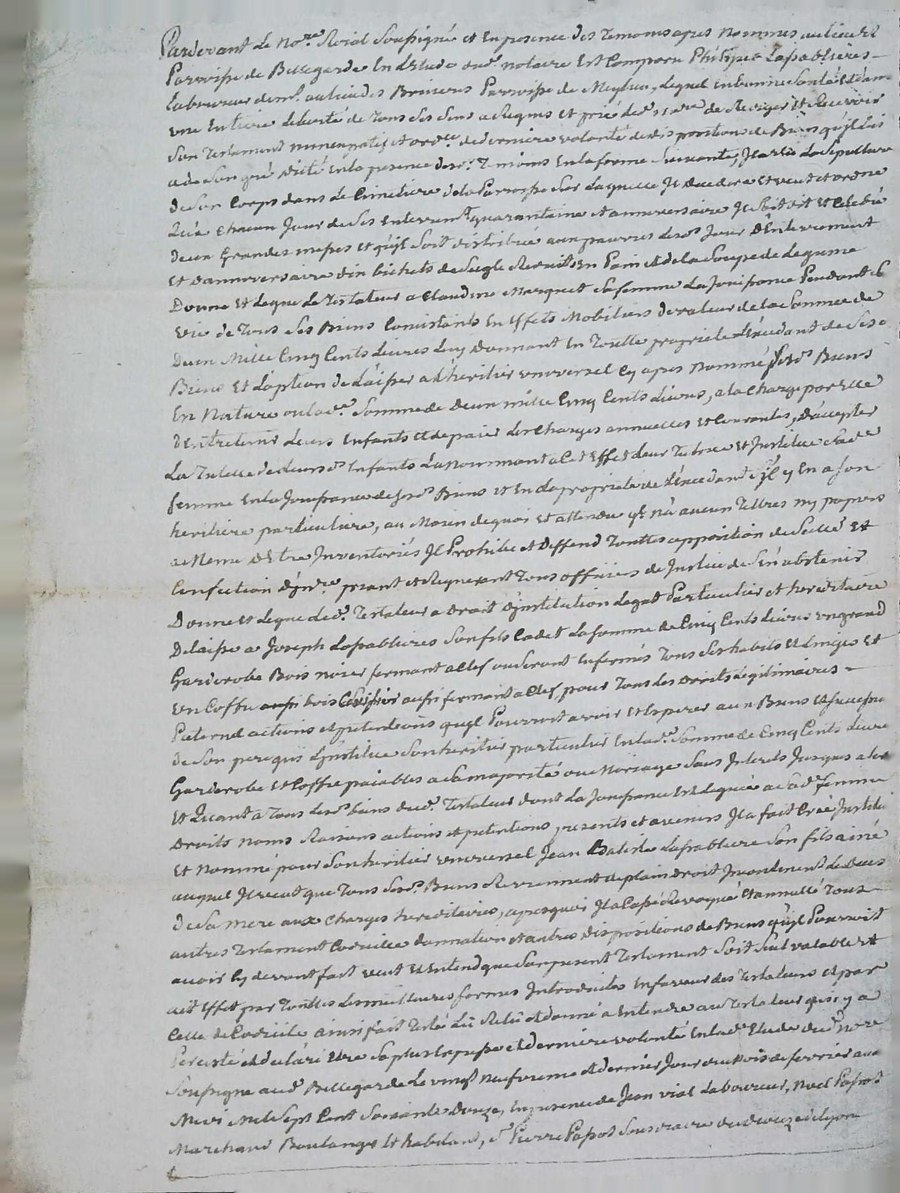 Pardevant Le No.re Roial Soussigné et En presence des Temoins apres Nommes au lieu et
Parroisse de Bellegarde En L'Etude dud. notaire Est Comparu Philippe Lapablieres
Laboureur dem.t au lieu des Bruieres Parroisse de Meylieu, Lequel En bonne Santé et dans
une Entiere Liberté de Tous Ses Sens a Requis et prié led. no.re de Rediger et Recevoir
Son Testament nuncupatif et derniere volonté de disposition de Biens qu'il lui
a de Son gré dicté En la presence des d. Temoins En la forme Suivante, Il a Elu La Sepulture
de Son Corps dans Le Cimetiere de la Parroisse Sur Laquelle Il decedera Et veut et ordonne
qu'a chacun Jour de Ses Enterrem.t quarantaine et anniversaire Il Soit dit et Celebré
deux Grandes messes et qu'il Soit distribué aux pauvres lesd. Jour D'Enterrement
Et d'anniversaire dix bichets de Seigle Reduits En Pain et de la Soupe de Legume
Donne Et Legue Le Testateur a Claudine Marquet Sa femme La Jouissance Pendant Sa
vie de Tous Ses Biens Consistants En Effets Mobiliers de valeur de la Somme de
Deux Mille Cinq Cents Livres Luy Donnant En Toutte proprieté L'Excedant de Ses
Biens Et L'option de Laisser a L'heritier universel Cy apres nommé Lesd. Biens
En Nature ou lad. Somme de Deux mille Cinq Cents Livres, a la Charge par Elle
D'Entretenir Leurs Enfants et de paier Les Charges annuelles Et Courantes, D'accepter
La Tutelle de leurs d. Enfants La nommant a Cet Effet Leur Tutrice Et Institue Sad.
femme En la Jouissance desd. Biens Et En la proprieté de L'Excedant S'il y En a Son
heritiere particuliere, au Moien de quoi Et attendu q'il N'a aucun Tittres ny papiers
a Meme D'Etre Inventoriés Il Prohibe et Deffend Touttes apposition de Scellé Et
Confection d'Inv.re priant et Requerant Tous officiers de Justice de S'En abstenir
Donne et Legue led. Testateur a Droit d'institution Legat Particulier et hereditaire
Delaisse a Joseph Lapablieres Son fils Cadet La Somme de Cinq Cents Livres un grand
Garderobe Bois noier fermant a Clef ou Seront Enfermés Tous Ses habits Et Linges Et
un Coffre bois Cerisier aussi fermant a Clef, pour Tous Les droits Legitimaires
Paternel actions et pretentions qu'il Pourroit avoir et Esperer aux Biens Et Succession
de Son pere qui L'institue Son heritier particulier En lad. Somme de Cinq Cents Livres
Garderobe Et Coffre paiables a Sa majorité ou Mariage Sans Interets Jusques alors
Et Quant a Tous Lesd. biens dud. Testateur dont La Jouissance Est Leguée a Sad. femme
Droits noms Raisons actions et pretentions presents et avenirs Il a fait Créé Institué
Et Nommé pour Son heritier universel Jean Batiste Lapabliere Son fils ainé
auquel Il veut que Tous Sesd. Biens Reviennent de plain droit Incontinent Le deces
de Sa mere aux Charges hereditaires, apres quoi Il a Cassé Revoqué Et annullé Tous
autres Testament Codicille donnation et autres dispositions de Biens qu'il Pourroit
avoir Cy devant fait veut Et Entend que Son present Testament Soit Seul valable Et
ait Effet par Touttes Les meilleures formes Introduites En faveur des Testateurs et par
Celle de Codicile ainsi fait Testé Lû Relû et donné a Entendre au Testateur qui y a
Persisté et declaré Etre Sa plus Expresse Et derniere volonté En lad. Etude dud. no.re
Soussigné aud. Bellegarde Le vingt neufvieme et dernier Jour du Mois de fevrier avant
Midi Mil Sept Cent Soixante Douze, En presence de Jean vial Laboureur, Noel Papot
Marchand Boulanger Et Sr. Pierre Papot